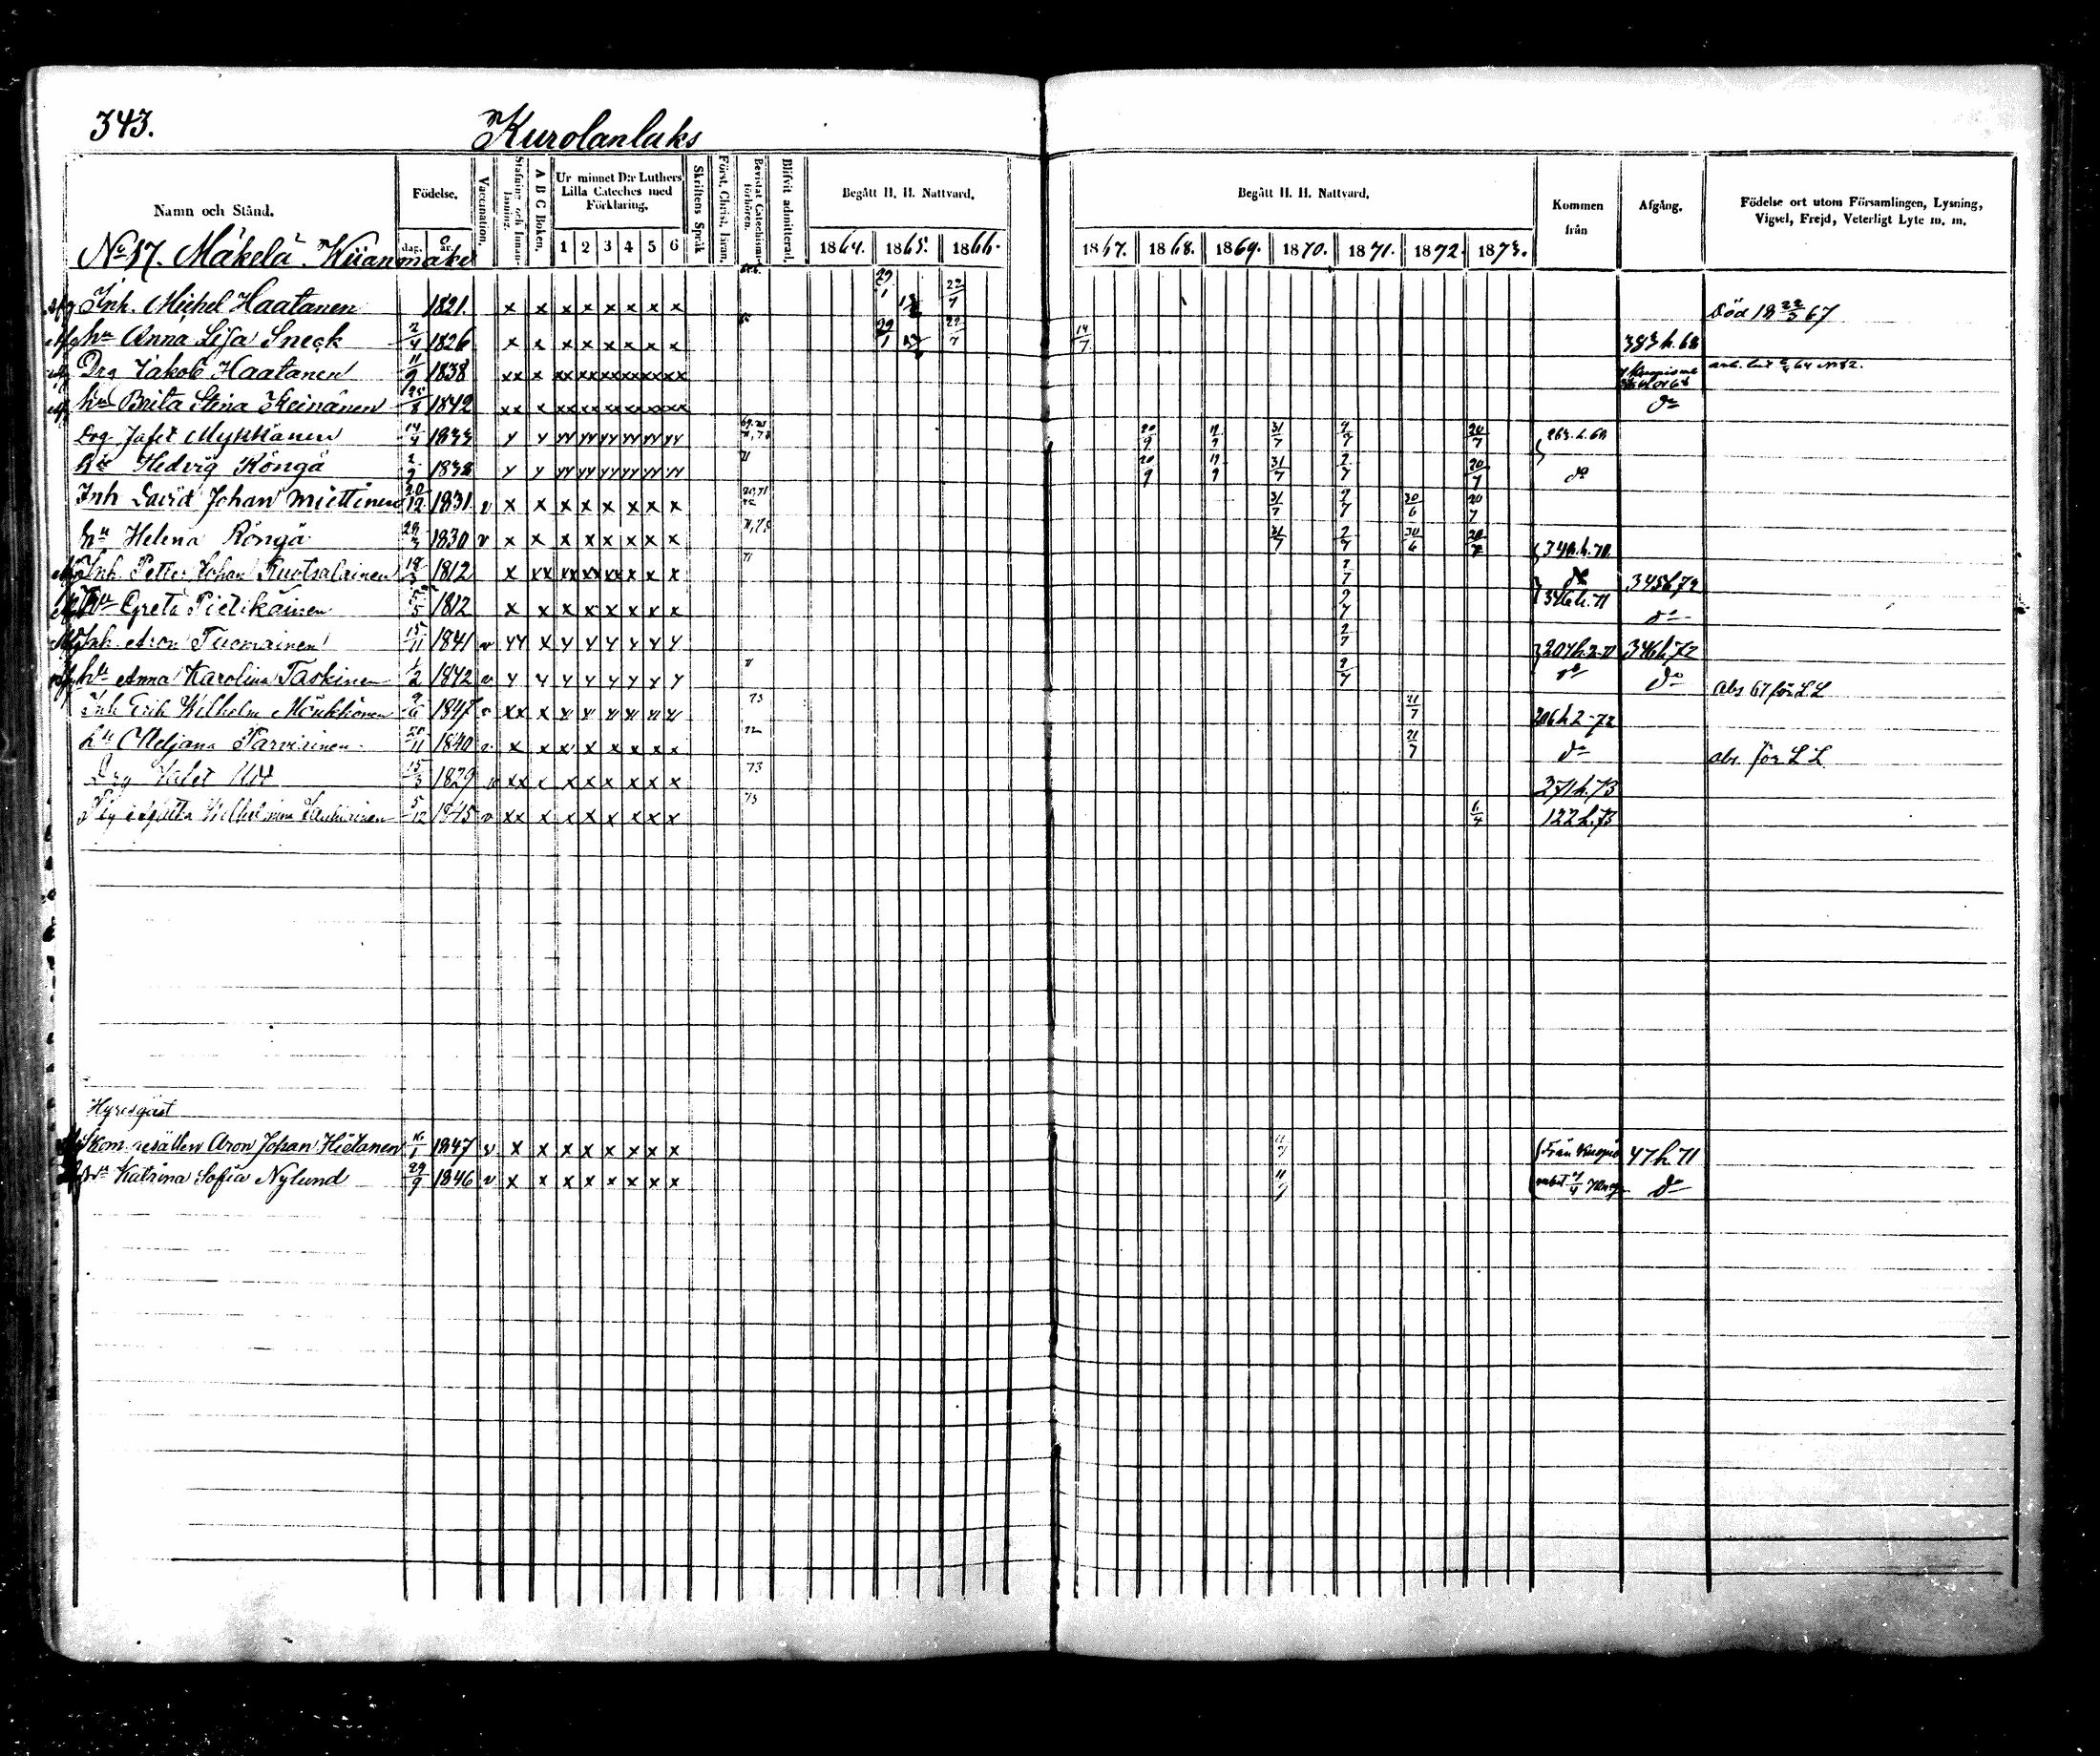 343.
Kurolanlaks
Namn och Stånd.
Födelse.
dag.
år.
Vaccination.
Stafning och Innanläsning.
A B C Boken.
Ur minnet D:r Luthers Lilla Cateches med Förklaring.
1 2 3 4 5 6
Skriftens Språk
Först. Christ. Inan.
Bevistat Catechismiförhören.
Blifvit admitterad.
Begått H. H. Nattvard.
1864. 1865. 1866.
Begått H. H. Nattvard.
1867. 1868. 1869. 1870. 1871. 1872. 1873.
Kommen från
Afgång.
Födelse ort utom Församlingen, Lysning, Vigsel, Frejd, Veterligt Lyte m. m.
No 37. Mäkelä.
Inh. Michel Haatanen 1821. x x x x x x x x 29/1 22/7 Död 18 22/3 67
hu Anna Lisa Sneck 2/4 1826 x x x x x x x x 29/1 22/7 14/7 383 h. 68
Drg Jakob Haatanen 11/9 1838 xx x xx xx xx xx xx xx
hu Brita Stina Keinänen 1842 xx x xx xx xx xx xx xx do
Drg Jafet Mykkänen 14/4 1833 y y yy yy yy yy yy yy 20/9 19/9 31/7 2/7 20/7 263. h. 68
hu Hedvig Röngä 2/2 1838 y y yy yy yy yy yy yy 71 20/9 19/9 31/7 2/7 20/7 do
Inh David Johan Miettinen 20/12 1831 v x x x x x x x x 31/7 2/7 30/6 20/7
hu Helena Röngä 29/3 1830 v x x x x x x x x 31/7 2/7 30/6 20/7 340 h. 70
Inh. Petter Johan Ruotsalainen 18/3 1812 x xx xx xx xx x x x 71 2/7 do 345 h. 72
hu Greta Pietikäinen 1812 x x x x x x x x 2/7 346 h. 71 do
Inh. Aron Tuomainen 15/11 1841 v yy x y y y y y y 2/7 207 h. 2-71 346 h. 72
hu Anna Karolina Taskinen 1/2 1842 v y y y y y y y y 71 2/7 do do
Inh Erik Wilhelm Mönkkönen 9/6 1847 v xx x 73 21/7 206 h 2-72 abs 67 för L L
hu Meljana Tarvainen 1840 v x x x x x x x x 72 21/7 do
15/3 1829 v xx x x x x x x x 73 271 h. 73 abs. för L L
Wilhelmina 5/12 1845 v xx x x x x x x x 73 6/4 122 h. 73
Hyresgäst
Skom. gesällen Aron Johan Hietanen 16/1 1847 v x x x x x x x x Från Kuopio 47 h. 71
hu Katrina Sofia Nylund 29/9 1846 v x x x x x x x x do